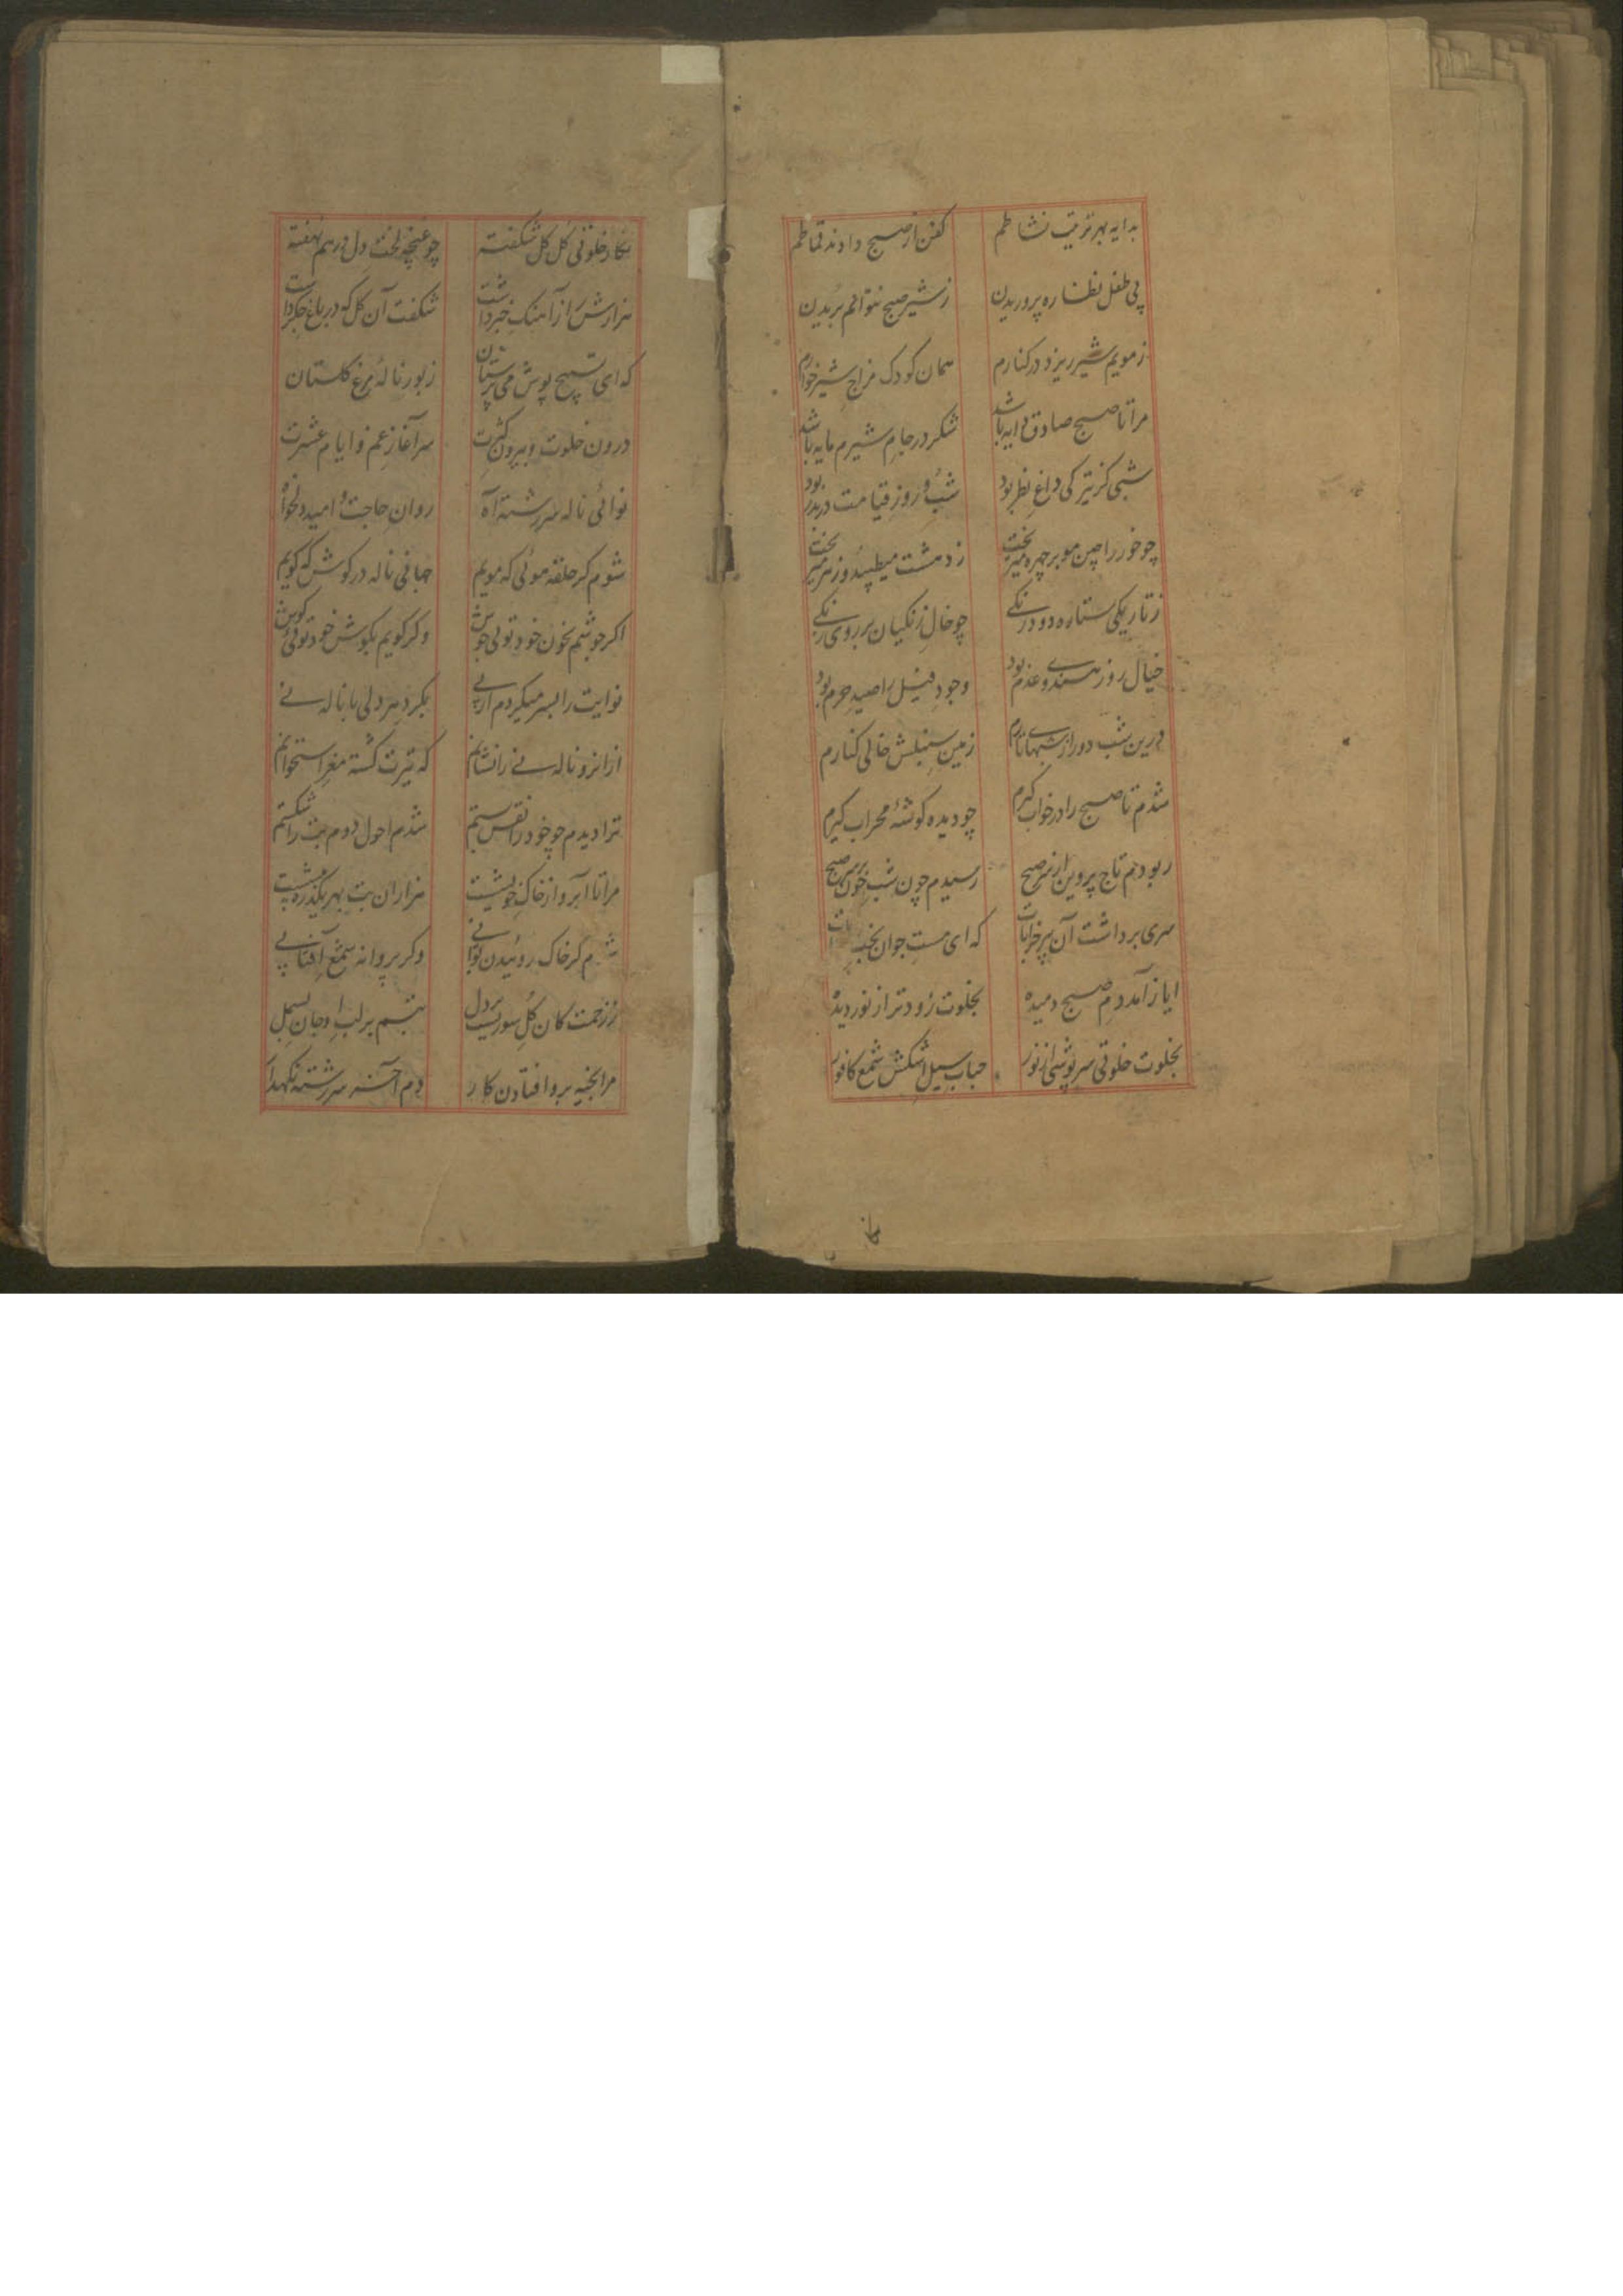 بدایه بهر تربیت نشاطم کفن از صبح دادند قماطم
پی طفل نظاره پروریدن ز شیر صبح نتوانم بریدن
ز مویم شیر ریزد در کنارم همان کودک مزاج شیرخوارم
مرا تا صبح صادق دایه باشد شکر در جام شیرم مایه باشد
شبی کز تیرکی داغ نظر بود شب و روز قیامت دربدر بود
چو خور را چین مو بر چهره میریخت ز دهشت میطپید و زهر میریخت
ز تاریکی ستاره دود رنکے چو خال زنکیان بر روی زنکے
خیال روز هندی و عدم بود وجود فیل را صید حرم بود
درین شب دور از شبهای تارم زمین سنبلش خالی کنارم
شدم تا صبح را در خواب کیرم چو دیده کوشهٔ محراب کیرم
ربودم تاج پروین از سر صبح رسیدم چون شب خون بر سر صبح
سری برداشت آن پیر خرابات که ای مست جوان
ایاز آمد دم صبح دمیده بخلوت زودتر از نور دیده
بخلوت خلوتی سرپوشی از نور حباب سیل اشکش شمع کافور
نکار خلوتی کل کل شکفته چو غنچه لخت دل برهم نهفته
هزارش از آهنک خبر داشت شکفت آن کل که در باغ جکر داشت
که ای تسبیح پوش می پرستان زبور نالهٔ مرغ کلستان
درون خلوت و بیرون کثرت سرآغاز غم و ایام عشرت
نوائی ناله سررشته آه روان حاجت و امید دلخواه
شوم کر حلقه موئی که مویم جهانی ناله در کوش که کویم
اکر جوشم بخون خود توئی جوش وکر کویم بکوش خود توئی کوش
نوایت را بسر میکردم از پے بکرد هر دلی با ناله نے
ازانرو ناله نے را نشانم که تیرت کشته مغز استخوانم
ترا دیدم چو خود را نقش بستم شدم احول دوم بت را شکستم
مرا تا آبرو از خاک خویشست هزاران بت بهر یکذره پیشست
کر خاک روئیدن نوائے وکر پروانه شمع آفتابے
ز زحمت کان کل سوریست بر دل تبسم بر لب او جان بسمل
مرا بخیه بروافتادن کار دم آخر سررشته نکهدار